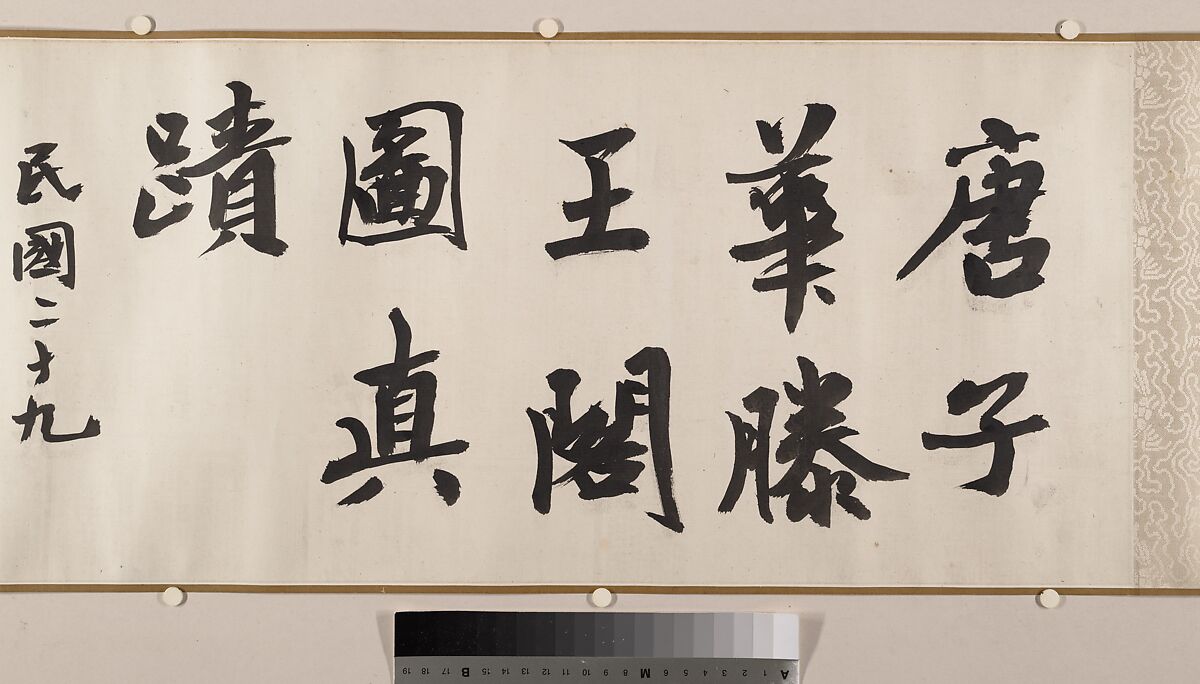 唐子
華滕
王閣
圖真
蹟
民國二十九
A 1 2 3 4 5 6 M 8 9 10 11 12 13 14 15 B 17 18 19